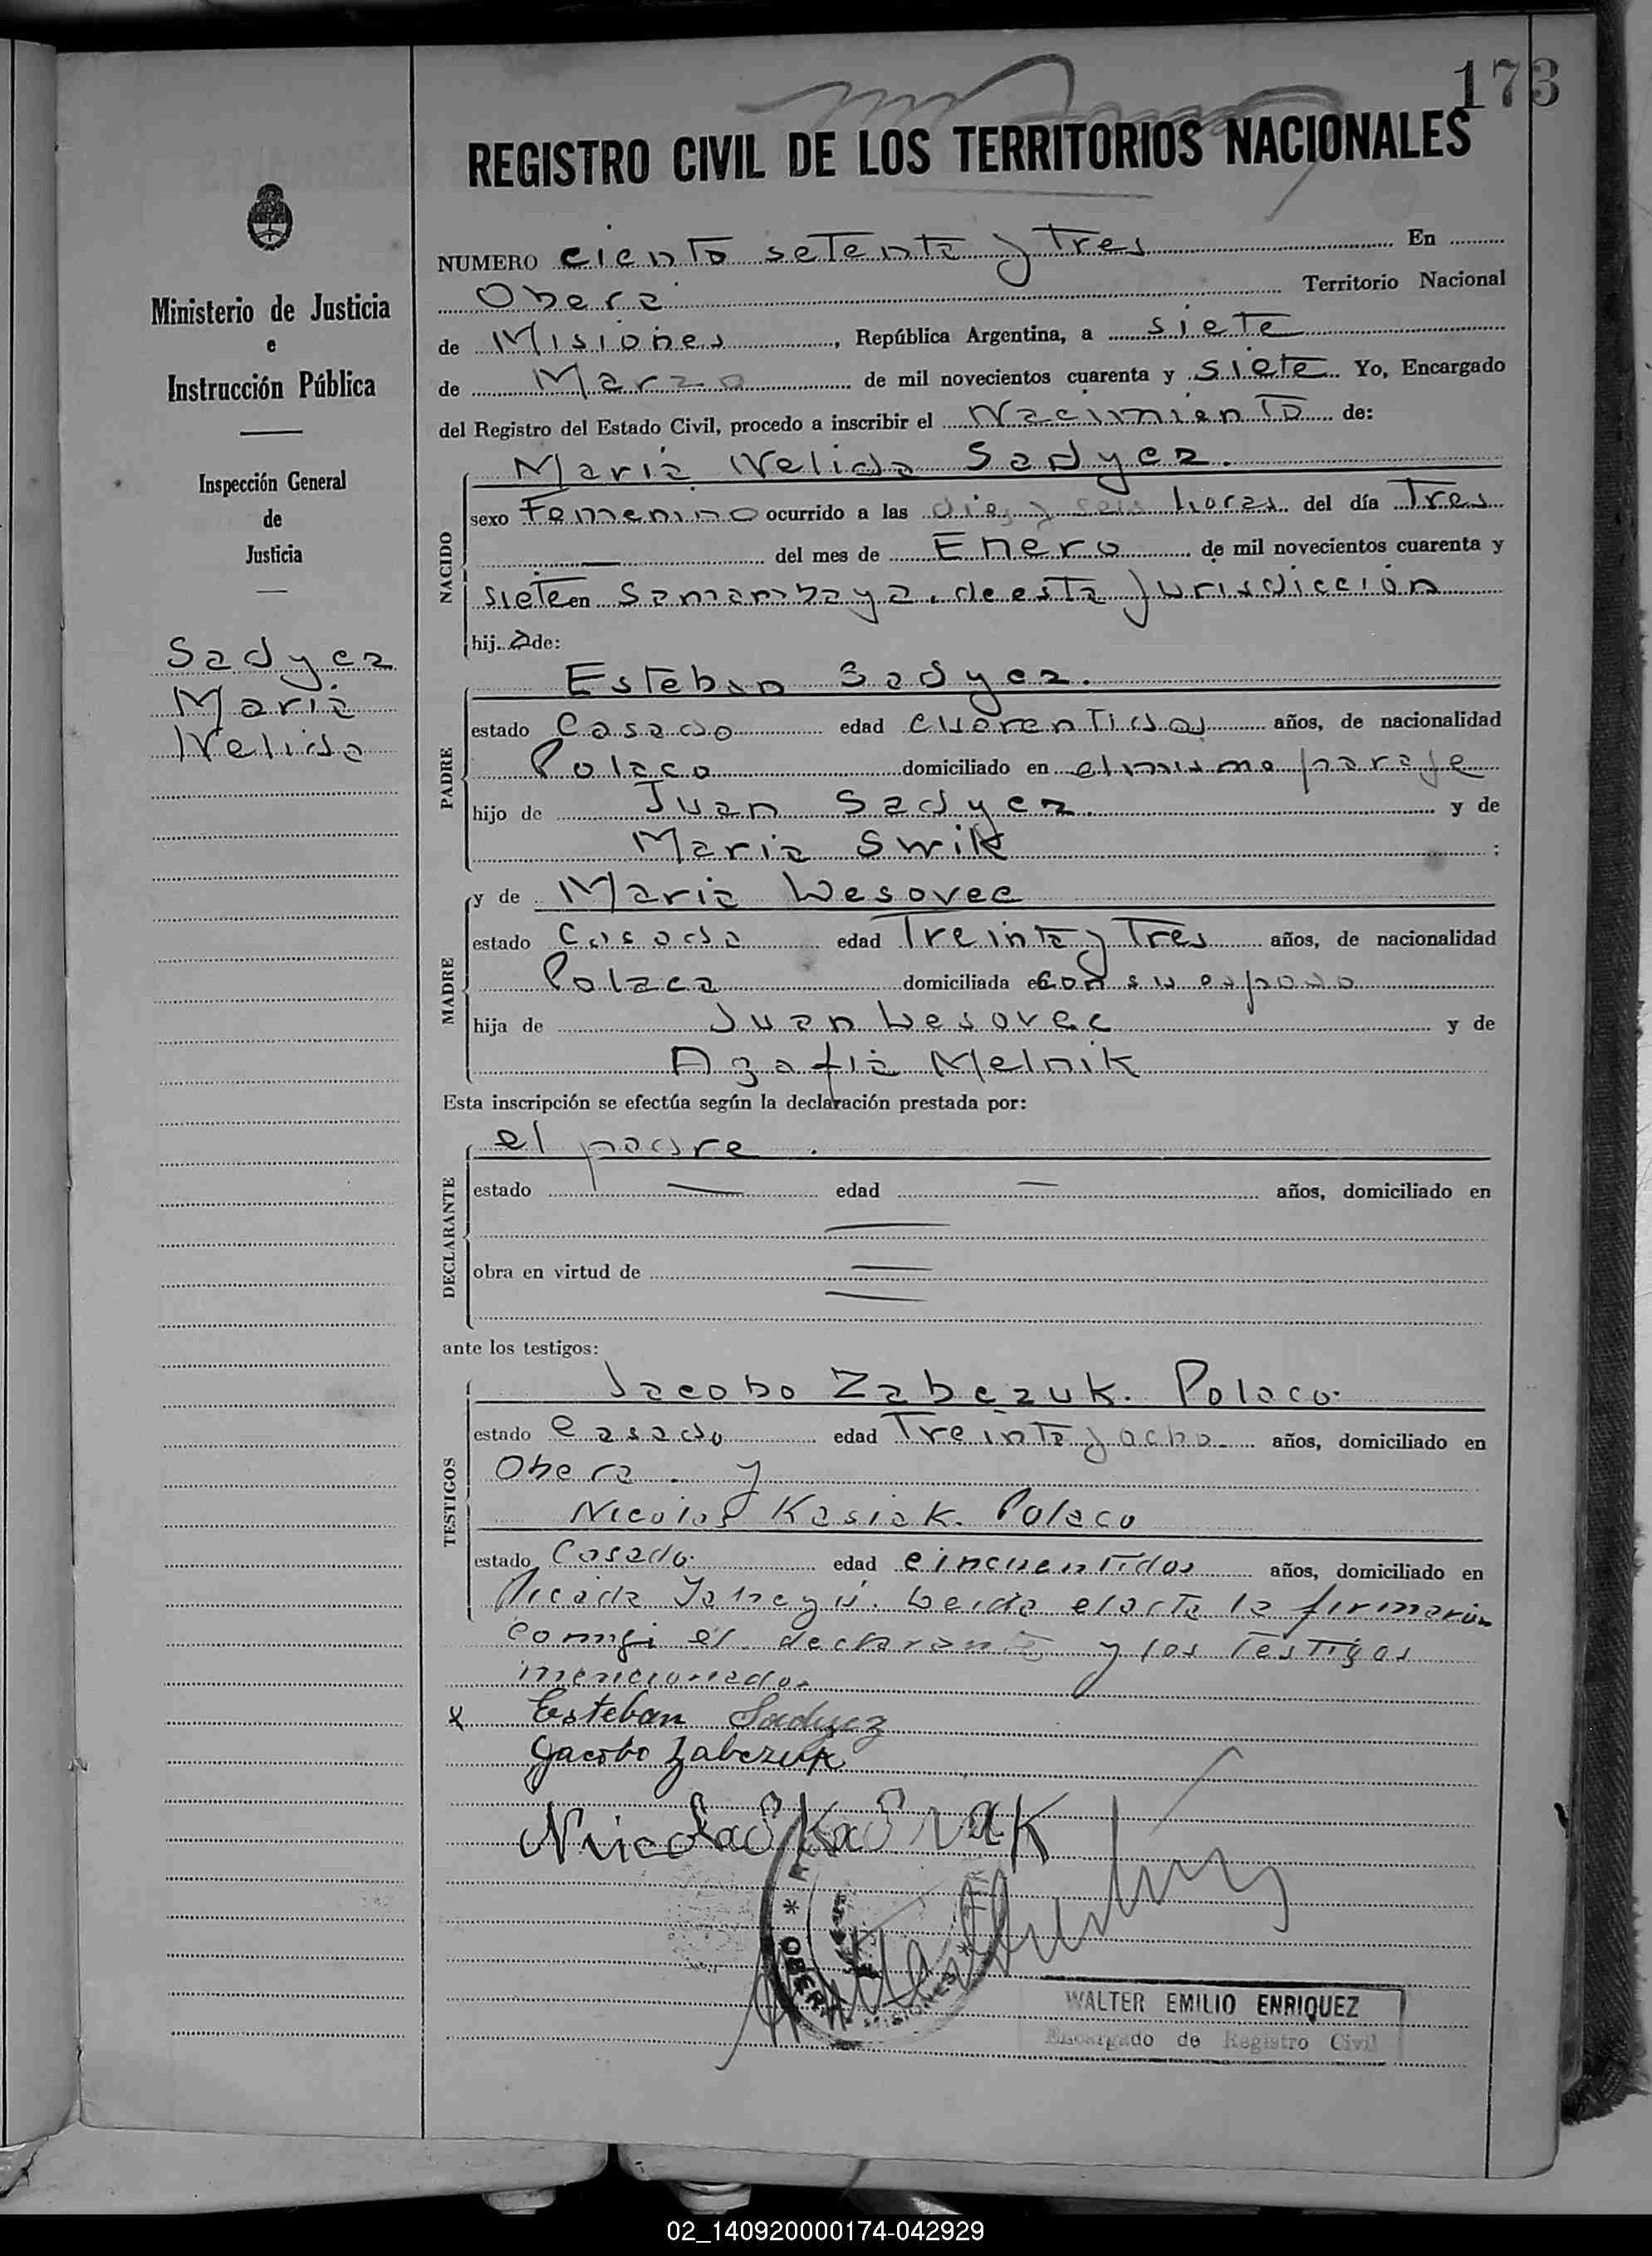 173
REGISTRO CIVIL DE LOS TERRITORIOS NACIONALES
NUMERO ciento setenta y tres En
Oberá Territorio Nacional
de Misiones, República Argentina, a siete
de Marzo de mil novecientos cuarenta y siete Yo, Encargado
del Registro del Estado Civil, procedo a inscribir el Nacimiento de:
Ministerio de Justicia
e
Instrucción Pública
Inspección General
de
Justicia
Sadyez
Maria
Nelida
NACIDO
Maria Nelida Sadyez.
sexo Femenino ocurrido a las diez y seis horas del día Tres
del mes de Enero de mil novecientos cuarenta y
siete en Samambaya, de esta Jurisdicción
hija de:
PADRE
Esteban Sadyez.
estado Casado edad cuarentidos años, de nacionalidad
Polaco domiciliado en el mismo paraje
hijo de Juan Sadyez. y de
Maria Swik ;
MADRE
y de Maria Wesovec
estado Casada edad Treinta y Tres años, de nacionalidad
Polaca domiciliada con su esposo
hija de Juan Wesovec y de
Agafia Melnik
Esta inscripción se efectúa según la declaración prestada por:
DECLARANTE
el padre.
estado edad años, domiciliado en
obra en virtud de
ante los testigos:
TESTIGOS
Jacobo Zabczuk. Polaco.
estado Casado edad Treinta y ocho. años, domiciliado en
Obera. y
Nicolas Kasiak. Polaco
estado Casado. edad cincuentidos años, domiciliado en
Picada Leida el acta la firmaron
el declarante y los Testigos
mencionados
x Esteban Sadyez
Jacobo Zabczuk
Nicolas Kasiak
OBERA MISIONES
WALTER EMILIO ENRIQUEZ
Encargado de Registro Civil
02_140920000174-042929